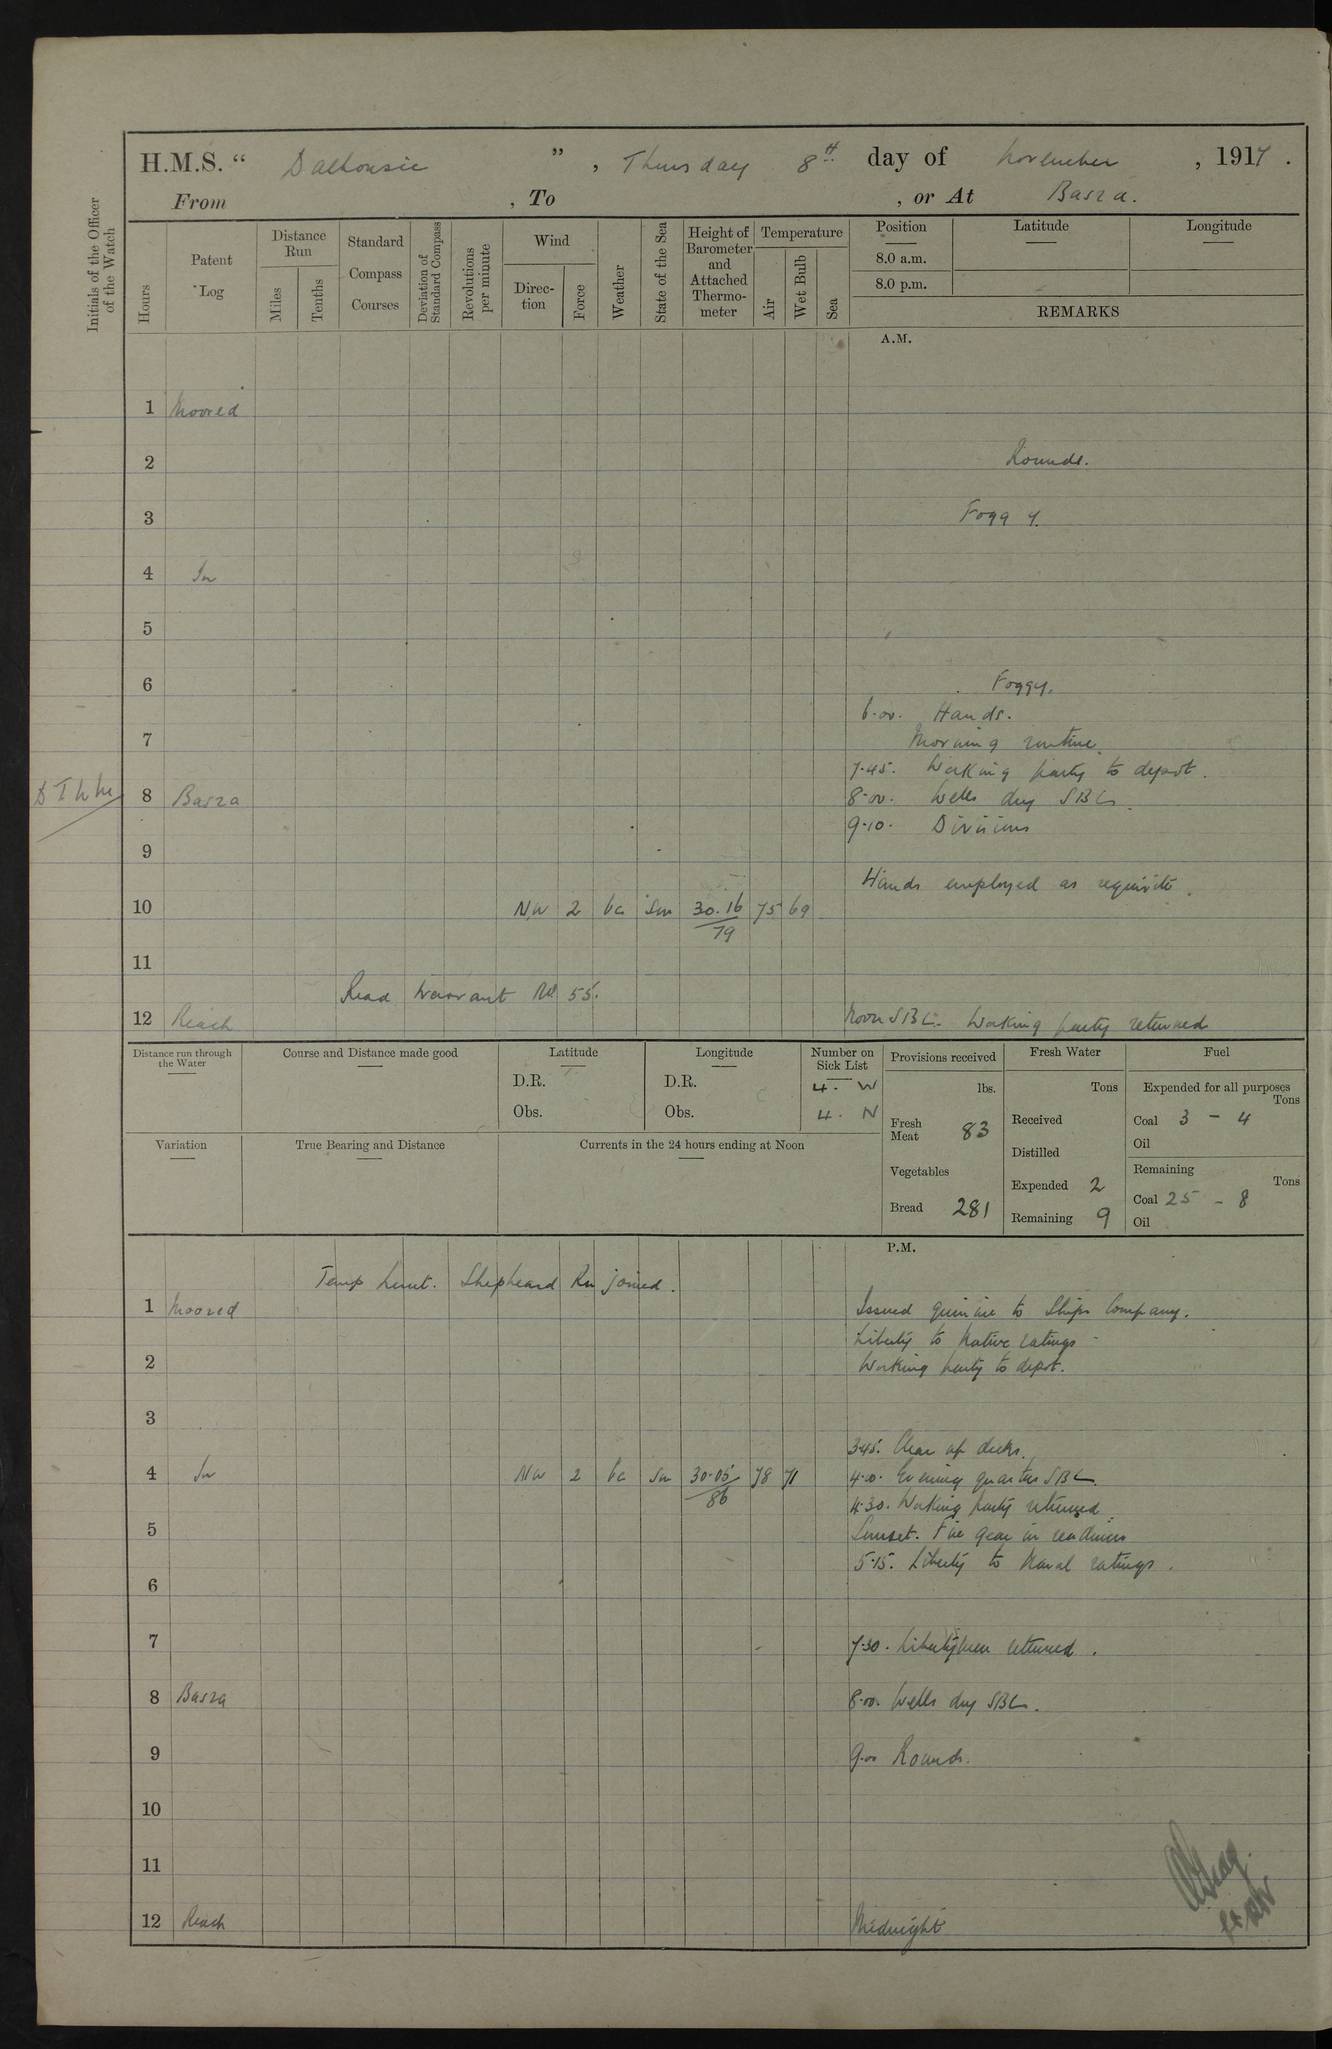 H.M.S. “ Dalhousie ” , Thursday 8th day of November , 1917 .
From , To , or At Basra.
Initials of the Officer of the Watch
Hours
Patent Log
Distance Run
Miles
Tenths
Standard Compass Courses
Deviation of Standard Compass
Revolutions per minute
Wind
Direction
Force
Weather
State of the Sea
Height of Barometer and Attached Thermometer
Temperature
Air
Wet Bulb
Sea
Position
8.0 a.m.
8.0 p.m.
Latitude
Longitude
REMARKS
A.M.
1 Moored
2 Rounds.
3 Foggy.
4 In
5
6 Foggy.
6.00. Hands.
7 Morning routine.
7.45. Working party to depot.
8 Basra 8.00. Wells dry SBC.
9.10. Divisions
9
Hands employed as requisite.
10 NW 2 bc Sm 30.16/79 75 69
11
Read Warrant No 55.
12 Reach Noon SBC. Working party returned
Distance run through the Water
Course and Distance made good
Latitude
D.R.
Obs.
Longitude
D.R.
Obs.
Number on Sick List
4. W
4. N
Provisions received
lbs.
Fresh Meat 83
Vegetables
Bread 281
Fresh Water
Tons
Received
Distilled
Expended 2
Remaining 9
Fuel
Expended for all purposes
Tons
Coal 3 - 4
Oil
Remaining
Tons
Coal 25 - 8
Oil
Variation
True Bearing and Distance
Currents in the 24 hours ending at Noon
P.M.
Temp Lieut. Shepheard RN joined.
1 Moored Issued quinine to Ships Company.
Liberty to Native ratings
2 Working party to depot.
3
3.45. Clear up decks.
4 In NW 2 bc Sm 30.05/86 78 71 4.0. Evening quarters SBC.
4.30. Working party returned.
5 Sunset. Fire gear in readiness
5.15. Liberty to Naval ratings.
6
7 7.30. Libertymen returned.
8 Basra 8.00. Wells dry SBC.
9 9.00 Rounds.
10
11
12 Reach Midnight